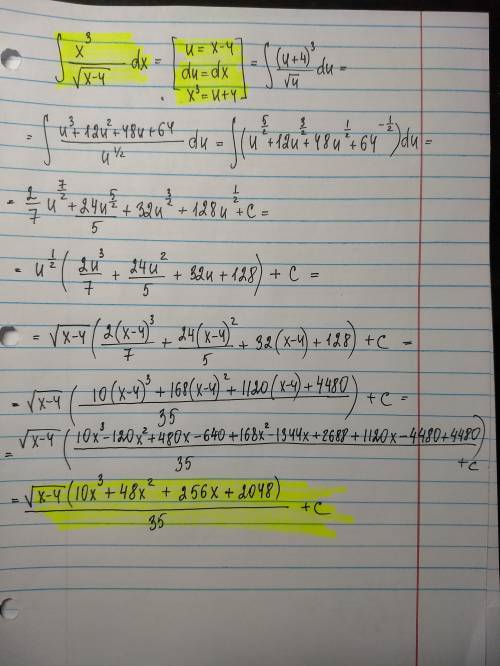 ∫ x³/√(x-4) dx = [u = x-4 du = dx x³ = u+4] = ∫ (u+4)³/√u du =
= ∫ (u³+12u²+48u+64)/u^(1/2) du = ∫(u^(5/2)+12u^(3/2)+48u^(1/2)+64^(-1/2))du =
= 2/7 u^(7/2) + 24u^(5/2)/5 + 32u^(3/2) + 128u^(1/2) + C =
= u^(1/2) (2u³/7 + 24u²/5 + 32u + 128) + C =
= √(x-4) (2(x-4)³/7 + 24(x-4)²/5 + 32(x-4) + 128) + C =
= √(x-4) ((10(x-4)³ + 168(x-4)² + 1120(x-4) + 4480)/35) + C =
= √(x-4) ((10x³-120x²+480x-640+168x²-1344x+2688+1120x-4480+4480)/35) + C
= √(x-4) (10x³+48x² + 256x + 2048)/35 + C